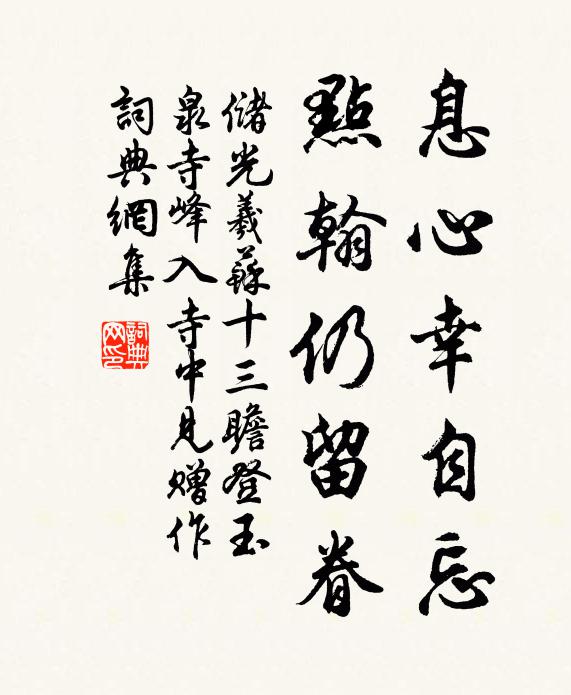 息心幸自忘
點翰仍留眷
儲光羲蘇十三瞻登玉
泉寺峰入寺中見贈作
詞典網集
詞典網印